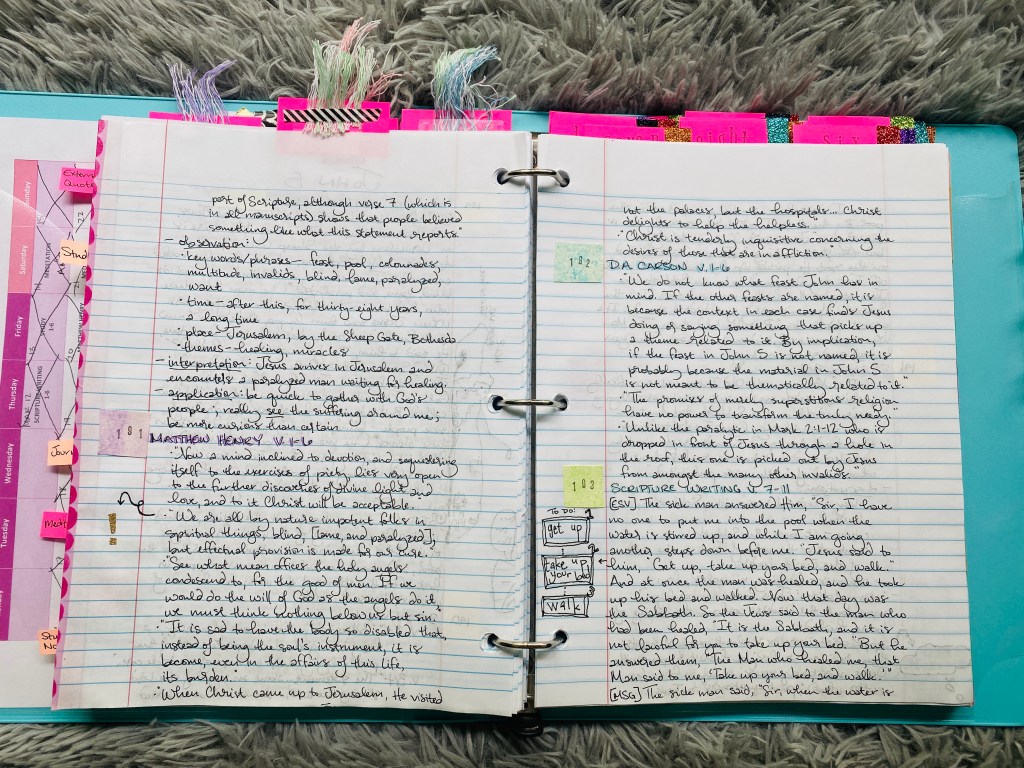 part of Scripture, although verse 7 (which is
in all manuscripts) shows that people believed
something like what this statement reports."
- observation:
• key words/phrases - feast, pool, colonnades,
multitude, invalids, blind, lame, paralyzed,
want
• time - after this, for thirty-eight years,
a long time
• place - Jerusalem, by the Sheep Gate, Bethesda
• themes - healing, miracles
- interpretation: Jesus arrives in Jerusalem and
encounters a paralyzed man waiting for healing.
- application: be quick to gather with God's
people; really see the suffering around me;
be more curious than certain
181
MATTHEW HENRY V. 1-6
• "Now a mind inclined to devotion, and sequestering
itself to the exercises of piety, lies very open
to the further discoveries of divine light and
love, and to it Christ will be acceptable.
• "We are all by nature impotent folks in
spiritual things, blind, [lame, and paralyzed],
but effectual provision is made for our cure."
• "See what mean offices the holy angels
condescend to, for the good of men. If we
would do the will of God as the angels do it,
we must think nothing below us but sin."
• "It is sad to have the body so disabled that,
instead of being the soul's instrument, it is
become, even in the affairs of this life,
its burden."
• "When Christ came up to Jerusalem, He visited
not the palaces, but the hospitals... Christ
delights to help the helpless."
• "Christ is tenderly inquisitive concerning the
desires of those that are in affliction."
182
D.A. CARSON V. 1-6
• "We do not know what feast John has in
mind. If the other feasts are named, it is
because the context in each case finds Jesus
doing or saying something that picks up
a theme related to it. By implication,
if the feast in John 5 is not named, it is
probably because the material in John 5
is not meant to be thematically related to it."
• "The promises of merely superstitious religion
have no power to transform the truly needy."
• "Unlike the paralytic in Mark 2:1-12 who is
dropped in front of Jesus through a hole in
the roof, this one is picked out by Jesus
from amongst the many other invalids."
183
SCRIPTURE WRITING V. 7-11
[ESV] The sick man answered Him, "Sir, I have
no one to put me into the pool when the
water is stirred up, and while I am going
another steps down before me." Jesus said to
him, "Get up, take up your bed, and walk."
And at once the man was healed, and he took
up his bed and walked. Now that day was
the Sabbath. So the Jews said to the man who
had been healed, "It is the Sabbath, and it is
not lawful for you to take up your bed." But he
answered them, "The Man who healed me, that
Man said to me, 'Take up your bed, and walk.'"
[MSG] The sick man said, "Sir, when the water is
TO DO:
1
get up
2
take up
your bed
3
walk
External
Quote
Stud
Jour
Medit
Stu
No
Saturday
Friday
Thursday
Wednesday
Tuesday
SCRIPTURE WRITING